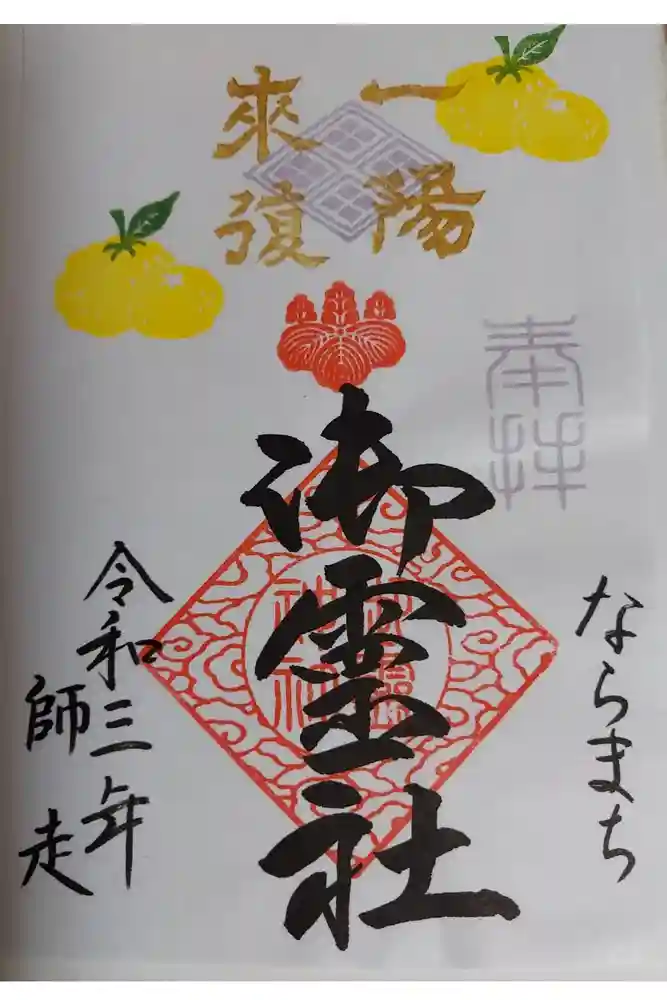 一陽
來復
奉拝
ならまち
御霊社
令和三年
師走